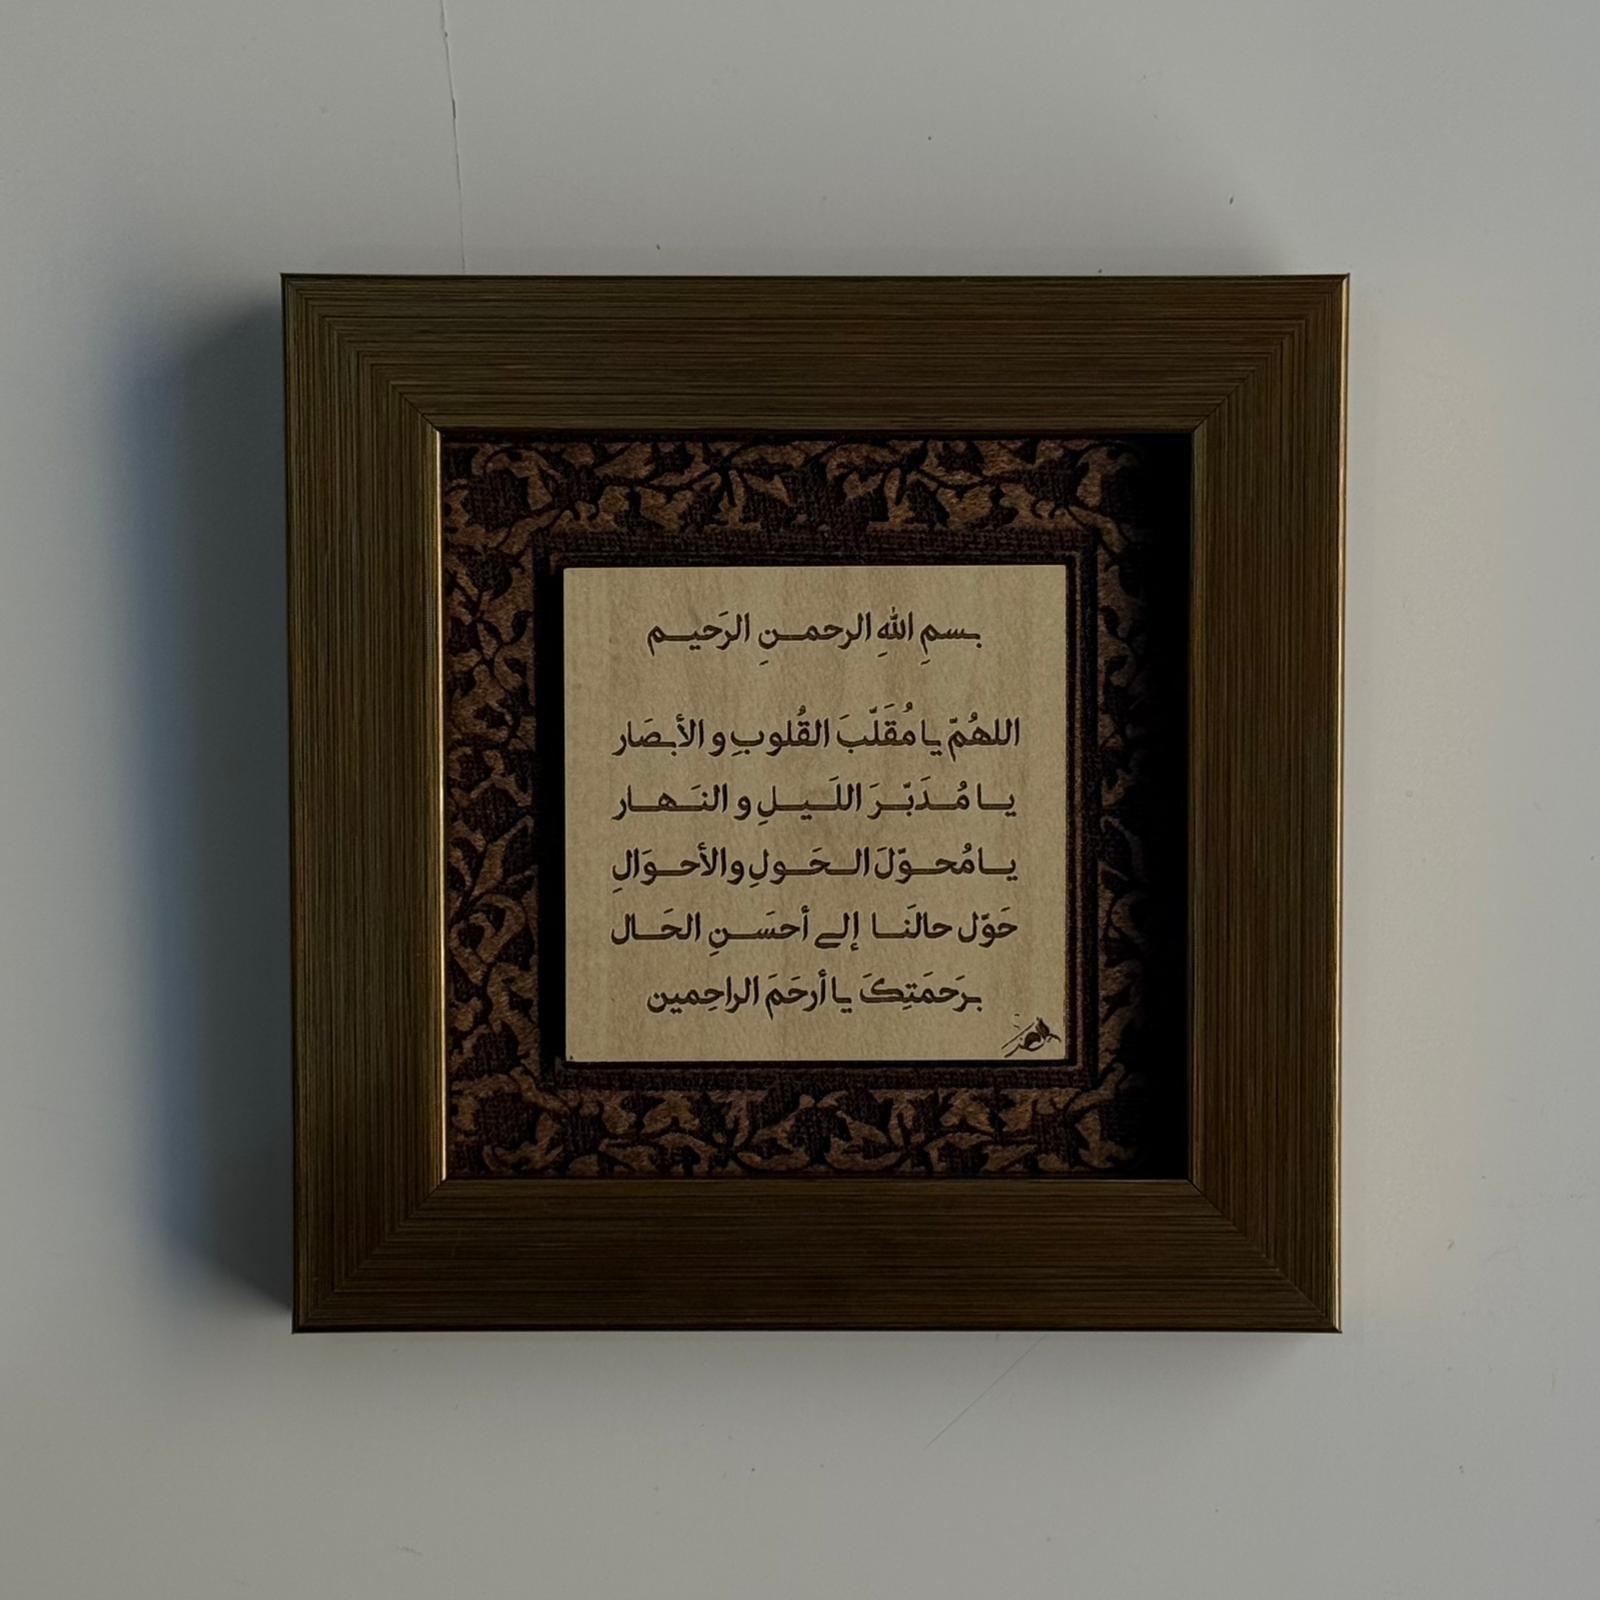 بسمِ اللهِ الرحمنِ الرَحیم
اللهُمّ یا مُقَلّبَ القُلوبِ و الأبصَار
یا مُدَبّرَ اللَیلِ و النَهار
یا مُحوّلَ الحَولِ والأحوَالِ
حَوّل حالَنا إلی أحسَنِ الحَال
برَحمَتِکَ یا أرحَمَ الراحِمین